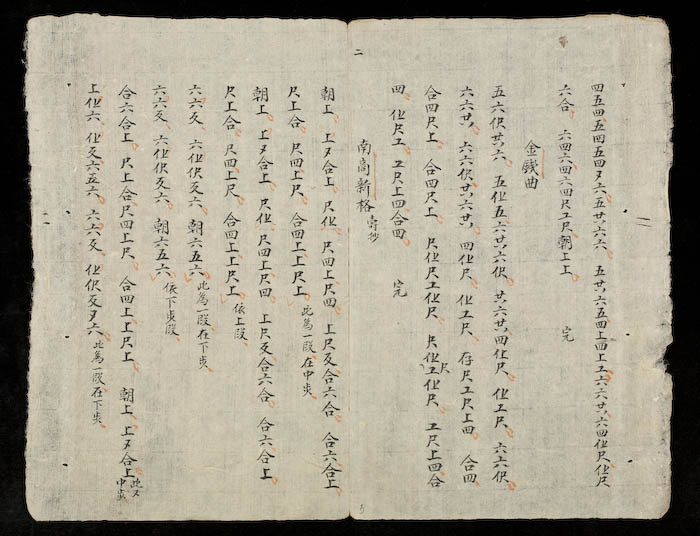 四五四五四五四ヌ六五廿六六、五廿六五四上四上工六六廿六四仩尺仩尺
六合、六四六四六四尺工尺朝上上 完
金錢曲
五六伬廿六、五仩五六廿六伬、廿六廿四仩尺、仩工尺、六六伬
六六廿、六六伬廿六廿、四仩尺、仩工尺、存尺工尺上四、合四
合四尺上、合四尺上、尺仩尺工仩尺、尺仩工仩尺、工尺上四合
四、仩尺工、工尺上四合四 完
南商新格 壽抄
二
朝上、上ヌ合上、尺仩、尺四上尺四、上尺反合六合、合六合上
尺上合、尺四上尺、合四上上尺上 此為一段在中步
朝上、上ヌ合上、尺仩、尺四上尺四、上尺反合六合、合六合上
尺上合、尺四上尺、合四上上尺上 依上段
六六反、六仩伬反六、朝六五六 此為一段在下步
六六反、六仩伬反六、朝六五六 依下步段
合六合上、尺上合尺四上尺、合四上上尺上、朝上、上ヌ合上 此又中步
上仩六、仩反六五六、六六反、仩伬反ヌ六 此為一段在下步